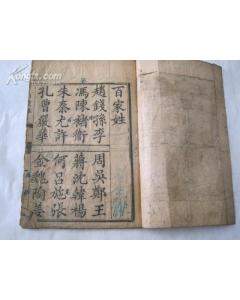 百家姓
趙錢孫李 周吳鄭王
馮陳褚衛 蔣沈韓楊
朱秦尤許 何呂施張
孔曹嚴華 金魏陶姜